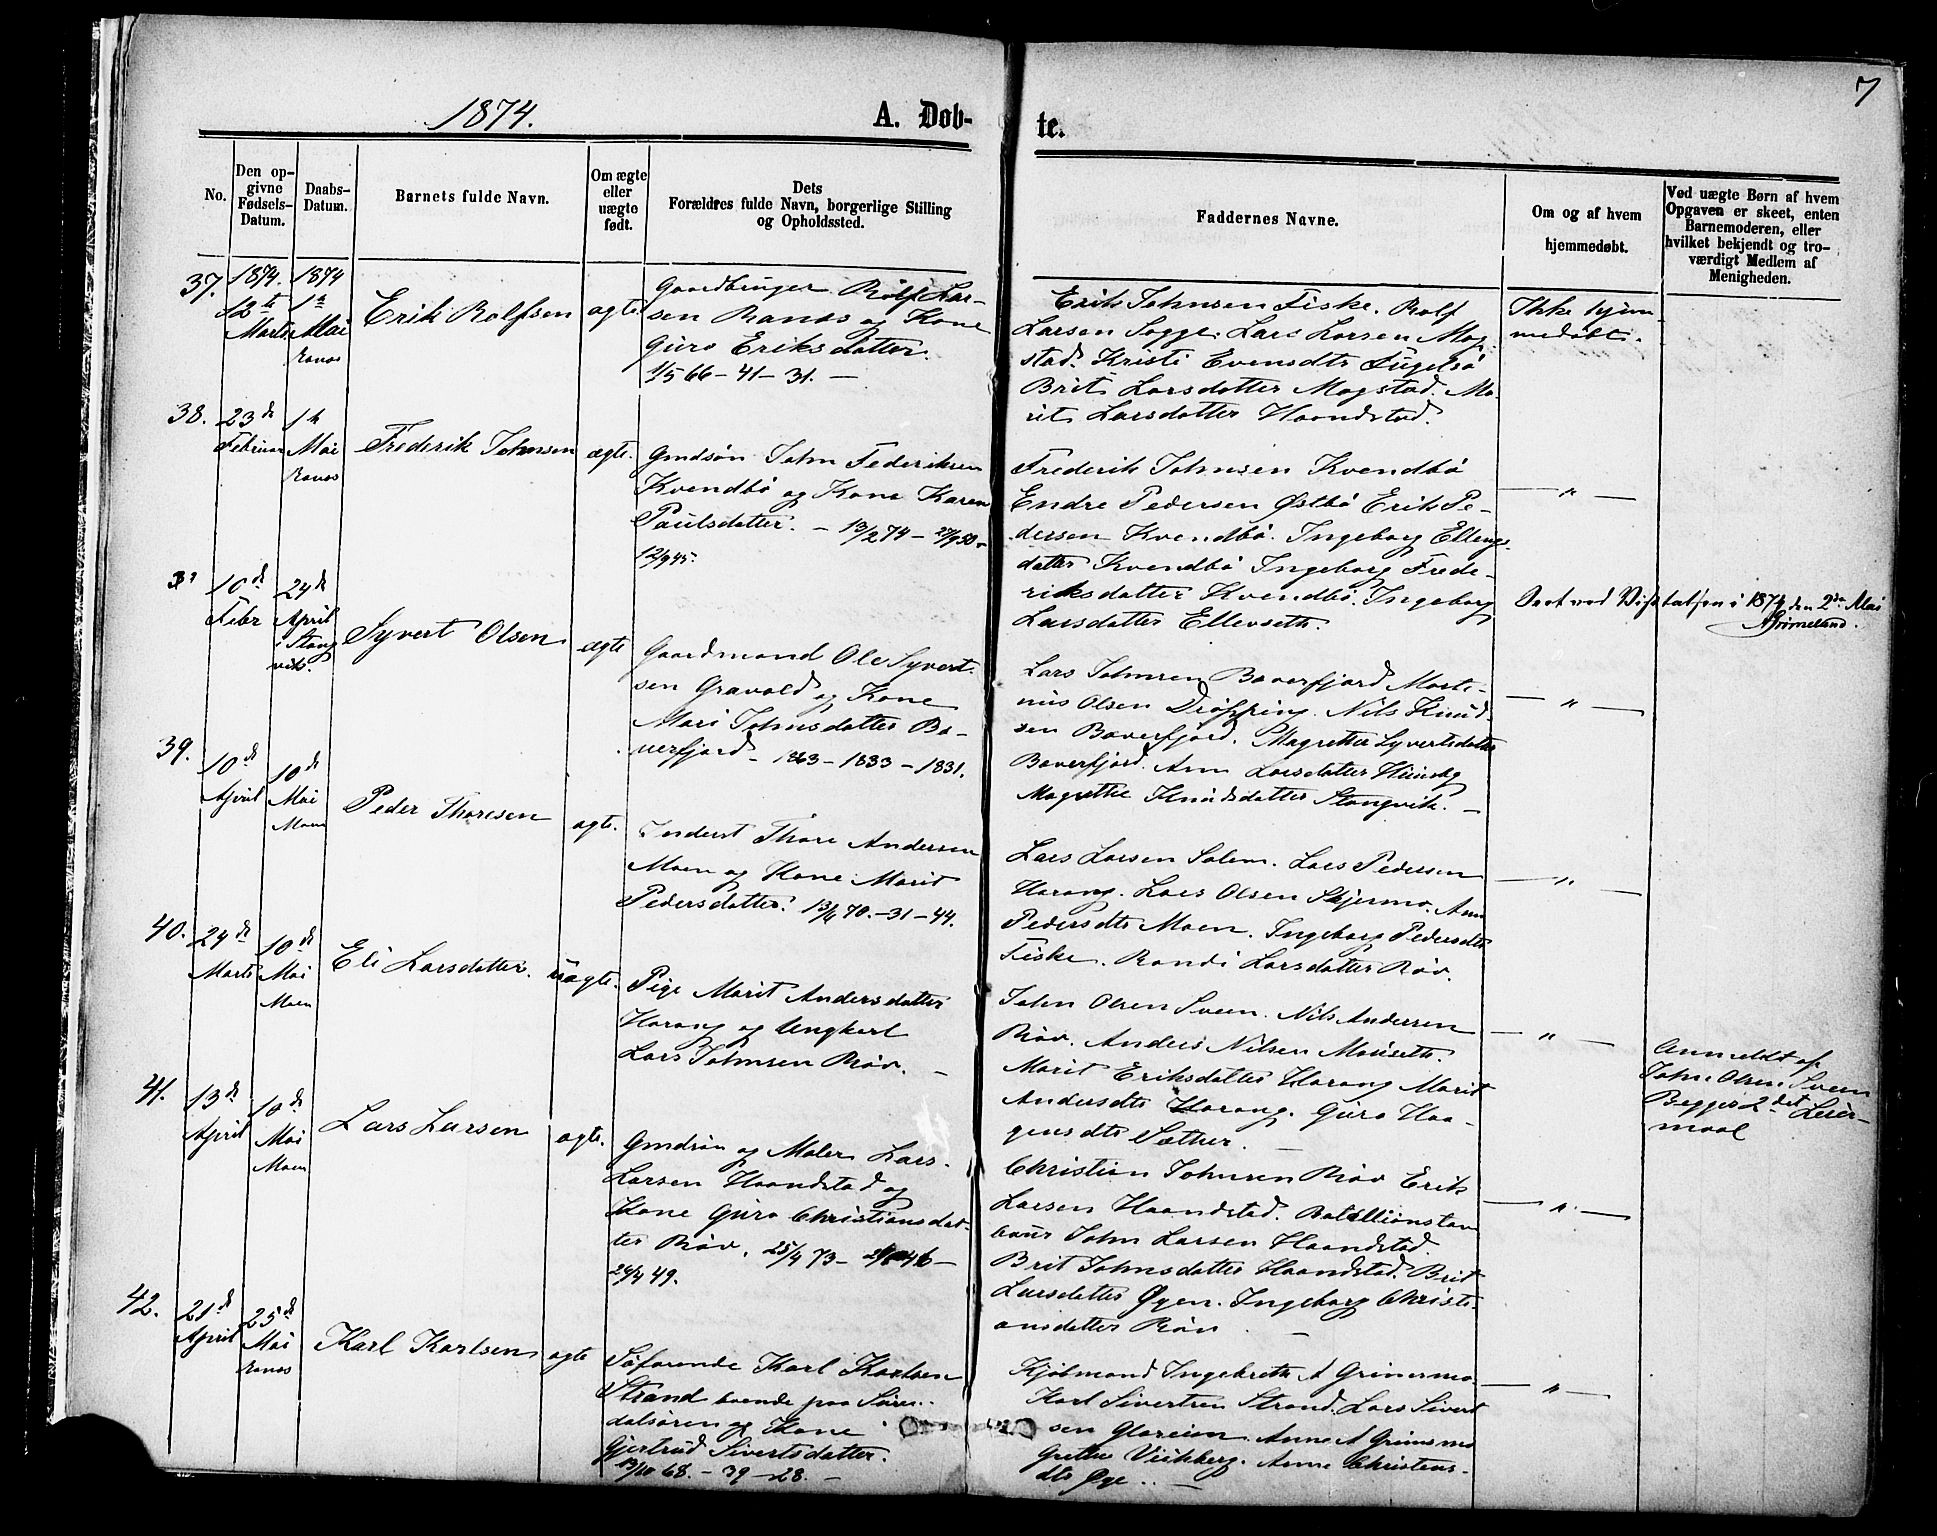 7
1874.
A. Døb-
te.
No.
Den op-
givne
Fødsels-
Datum.
Daabs-
Datum.
Barnets fulde Navn.
Om ægte
eller
uægte
født.
Dets
Forældres fulde Navn, borgerlige Stilling
og Opholdssted.
Faddernes Navne.
Om og af hvem
hjemmedøbt.
Ved uægte Børn af hvem
Opgaven er skeet, enten
Barnemoderen, eller
hvilket bekjendt og tro-
værdigt Medlem af
Menigheden.
37.
1874.
12te
Marts
1874
1ste
Mai
Ranæs
Erik Rolfsen
ægte
Gaardbruger Rolf Lar-
sen Ranæs og Kone
Guro Eriksdatter.
1/5 66 - 41 - 31. -
Erik Johnsen Fiske. Rolf
Larsen Sogge. Lars Larsen Mog-
stad. Kristi Evensdtr Fugelsø
Brit Larsdatter Mogstad. Ma-
rit Larsdatter Haandstad.
Ikke hjem-
medøbt.
38.
23de
Februar
1ste
Mai
Ranæs
Frederik Johnsen
ægte.
Gmdsøn John Federiksen
Kvendbø og Kone Karen
Paulsdatter. - 13/2 74 - 27/9 50 -
12/9 45.
Frederik Johnsen Kvendbø
Endre Pedersen Østbø Erik Pe-
dersen Kvendbø. Ingeborg Ellings-
datter Kvendbø Ingeborg Frede-
riksdatter Kvendbø. Ingeborg
Larsdatter Ellevseth.
— " —
Seet ved Visitatsen i 1874 den 2den Mai
Grimeland.
10de
Febr
24de
April
i Stang-
vik.
Syvert Olsen
ægte
Gaardmand Ole Syvert-
sen Gravold og Kone
Mari Johnsdatter Bø-
verfjord - 1863 - 1833 - 1831.
Lars Johnsen Bøverfjord Morte-
nus Olsen Drøpping. Nils Knud-
sen Bøverfjord. Magrethe Syvertsdatter
Bøverfjord. Ann Larsdatter
Magrethe Knudsdatter Stangvik. -
— " —
39.
10de
April
10de
Mai
Moen
Peder Thoresen
ægte.
Inderst Thore Andersen
Moen og Kone Marit
Pedersdatter. 13/4 70. - 31 - 44.
Lars Larsen Solem. Lars Pedersen
Harang. Lars Olsen Skjermo. Ann
Pedersdtr Moen. Ingeborg Pedersdtr
Fiske. Randi Larsdatter Røv.
— " —
40.
24de
Marts
10de
Mai
Moen
Eli Larsdatter.
uægte.
Pige Marit Andersdatter
Harang og Ungkarl
Lars Johnsen Røv. -
John Olsen Sveen. Nils Andersen
Røv. Anders Nilsen Mauseth.
Marit Eriksdatter Harang Marit
Andersdtr Harang. Guro Haa-
gensdtr Sæther. -
— " —
Anmeldt af
John Olsen Sveen
Begges 2det Leier-
maal
41.
13de
April
10de
Mai
Moen
Lars Larsen
ægte.
Gmdsøn og Maler Lars
Larsen Haandstad og
Kone Guro Christiansdat-
ter Røv. 25/4 73 -
24/4 49.
Christian Johnsen Røv Erik
Larsen Haandstad. Bataillionstam-
bour John Larsen Haandstad
Brit Johnsdatter Haandstad. Brit
Larsdatter Øyen. Ingeborg Christi-
ansdatter Røv. -
— " —
42.
21de
April
25de
Mai
Ranæs
Karl Karlsen
ægte
Søfarende Karl Karlsen
Strand boende paa Suren-
dalsøren og Kone
Gjertrud Sivertsdatter.
13/10 68. - 39 - 28. -
Kjøbmand Ingebreth A Grinsmo.
Karl Sivertsen Strand. Lars Sivert-
sen Glærem. Anne A Grinsmo
Grethe Viikberg. Anne Christens-
dtr Øye. -
— " —